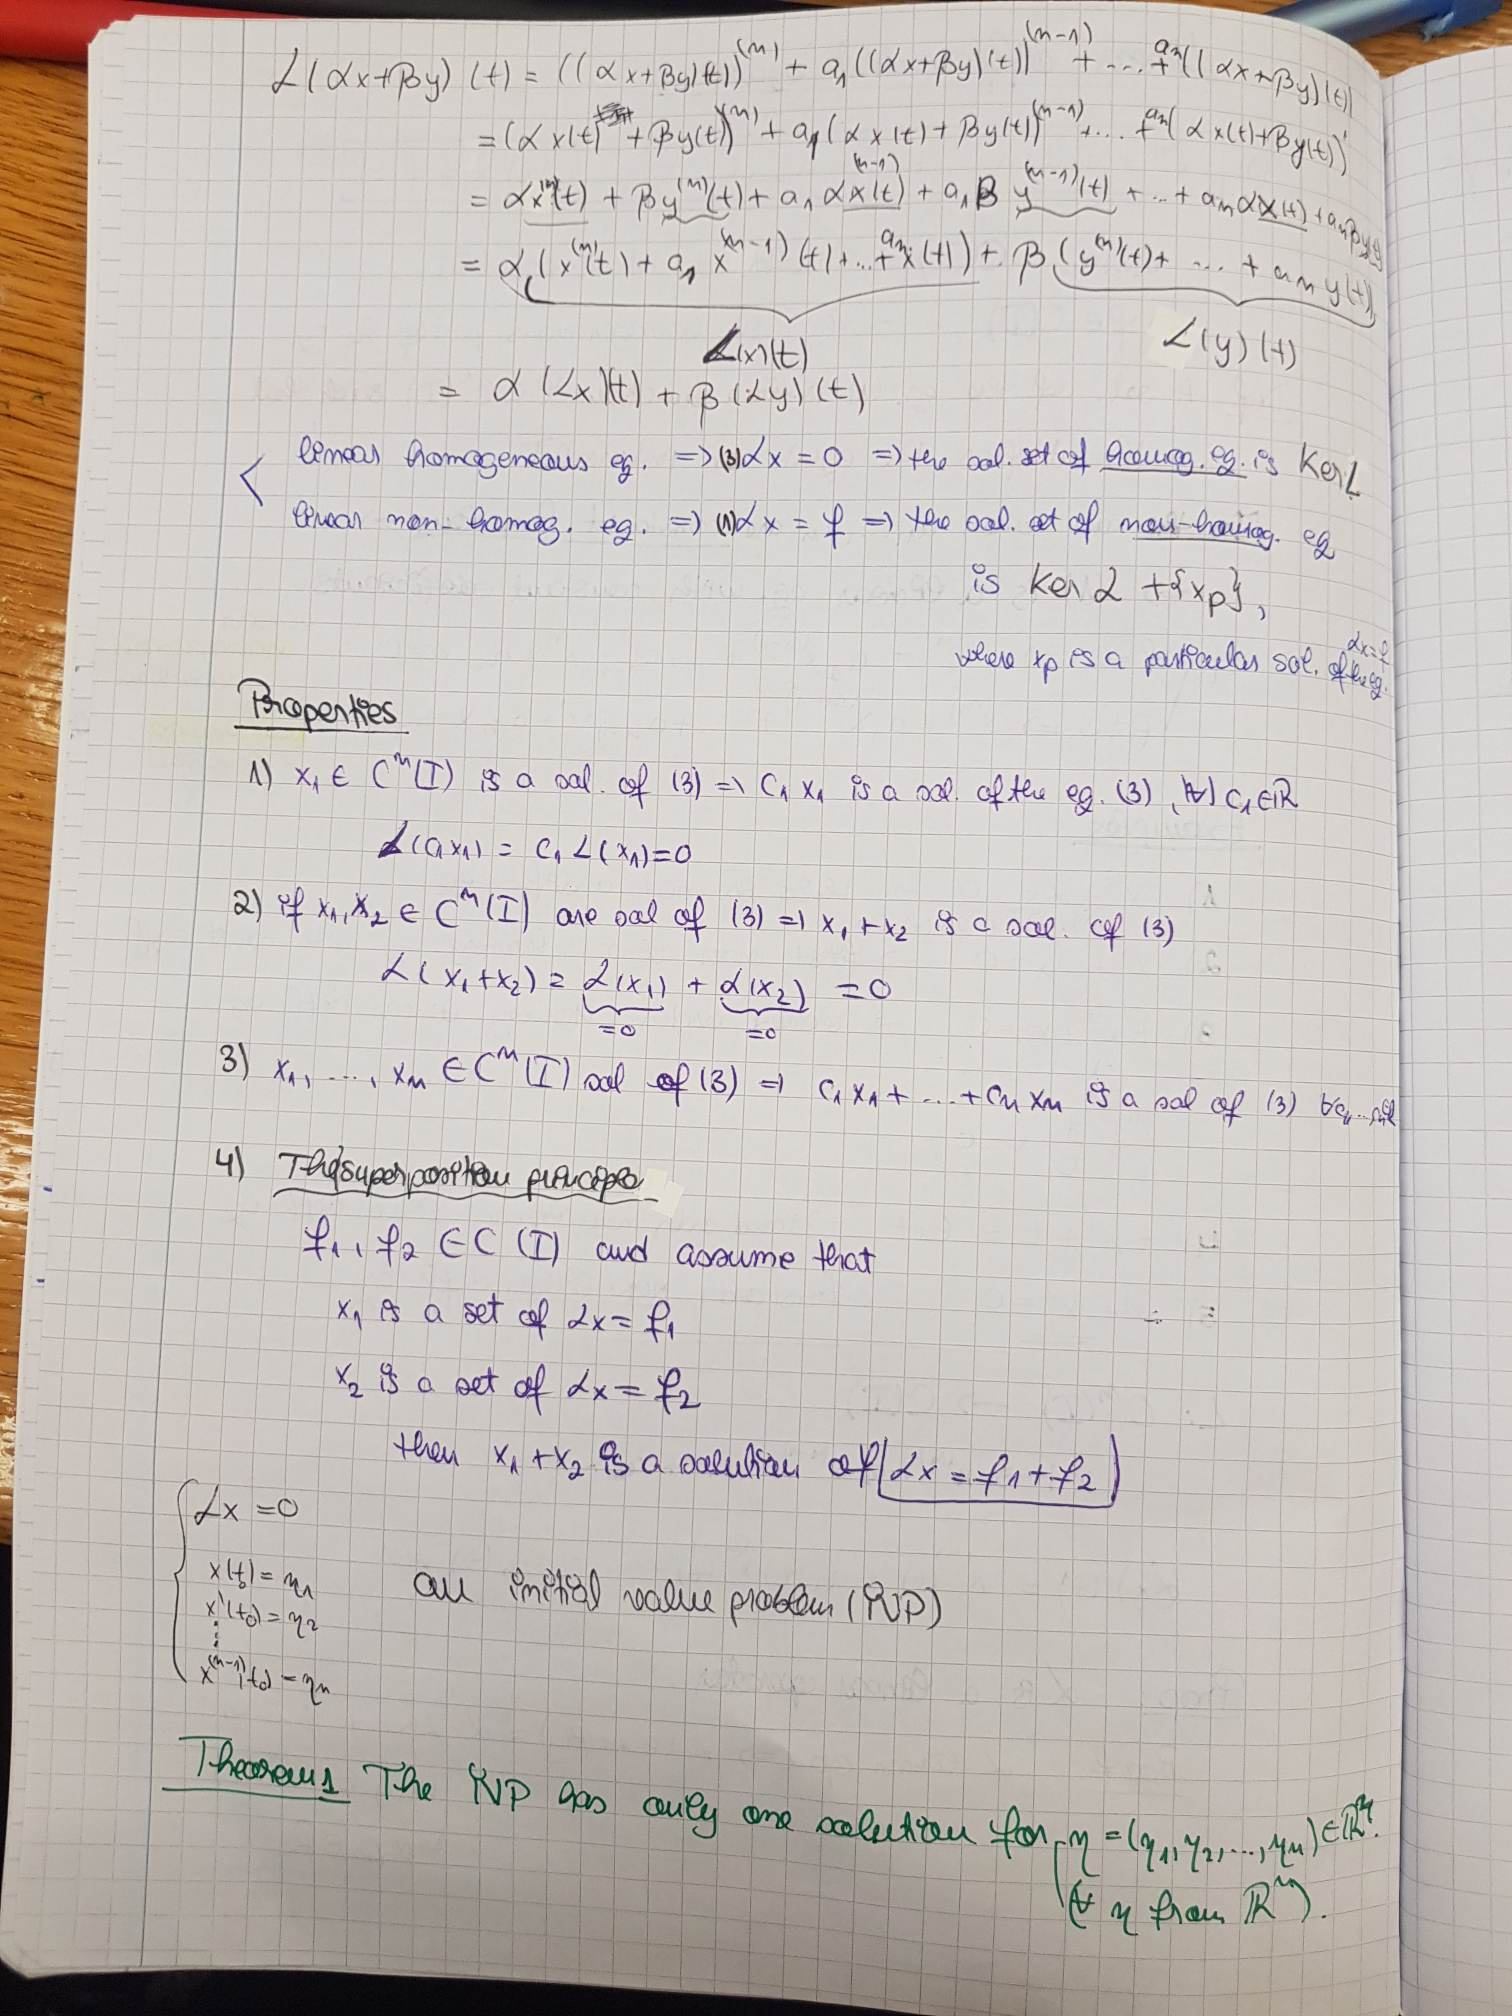 L(αx+βy)(t) = ((αx+βy)(t))^(n) + a₁((αx+βy)(t))^(n-1) + ... + aₙ((αx+βy)(t))
= (αx(t) + βy(t))^(n) + a₁(αx(t) + βy(t))^(n-1) + ... + aₙ(αx(t)+βy(t))
= αx^(n)(t) + βy^(n)(t) + a₁αx^(n-1)(t) + a₁βy^(n-1)(t) + ... + aₙαx(t) + aₙβy(t)
= α(x^(n)(t) + a₁x^(n-1)(t) + ... + aₙx(t)) + β(y^(n)(t) + ... + aₙy(t))
L(x)(t) L(y)(t)
= α(Lx)(t) + β(Ly)(t)
linear homogeneous eq. => (3) Lx = 0 => the sol. set of homog. eq. is Ker L
linear non-homog. eq. => (1) Lx = f => the sol. set of non-homog. eq
is Ker L + {xₚ},
where xₚ is a particular sol. of the eq. Lx=f
Properties
1) x₁ ∈ Cⁿ(I) is a sol. of (3) => c₁x₁ is a sol. of the eq. (3), (∀) c₁∈ℝ
L(c₁x₁) = c₁L(x₁)=0
2) if x₁, x₂ ∈ Cⁿ(I) are sol of (3) => x₁+x₂ is a sol. of (3)
L(x₁+x₂) = L(x₁) + L(x₂) = 0
=0 =0
3) x₁, ..., xₙ ∈ Cⁿ(I) sol of (3) => c₁x₁ + ... + cₙxₙ is a sol of (3)
4) The superposition principle
f₁, f₂ ∈ C(I) and assume that
x₁ is a set of Lx = f₁
x₂ is a set of Lx = f₂
then x₁+x₂ is a solution of Lx = f₁+f₂
Lx = 0
x(t₀) = η₁
x'(t₀) = η₂
⋮
x^(n-1)(t₀) = ηₙ
an initial value problem (IVP)
Theorem 1 The IVP has only one solution for η = (η₁, η₂, ..., ηₙ) ∈ ℝⁿ.
(∀ η from ℝⁿ).